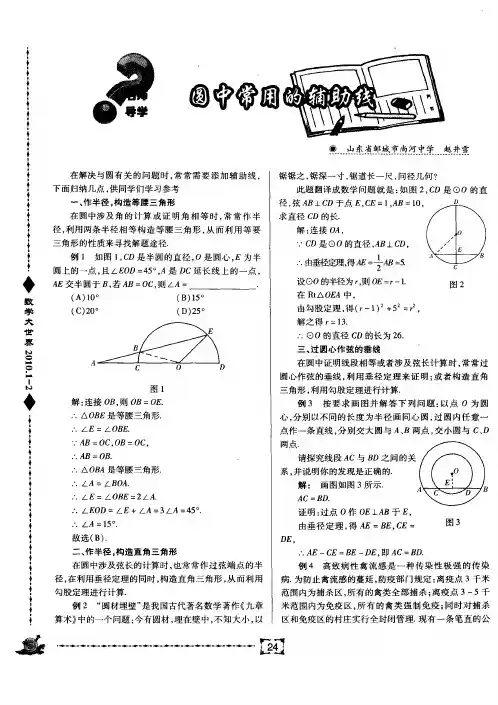 名师
导学
圆中常用的辅助线
山东省邹城市尚河中学 赵井雷
在解决与圆有关的问题时,常常需要添加辅助线,
下面归纳几点,供同学们学习参考
一、作半径,构造等腰三角形
在圆中涉及角的计算或证明角相等时,常常作半
径,利用两条半径相等构造等腰三角形,从而利用等要
三角形的性质来寻找解题途径.
例1 如图1,CD是半圆的直径,O是圆心,E为半
圆上的一点,且∠EOD=45°,A是DC延长线上的一点,
AE交半圆于B,若AB=OC,则∠A=
(A)10° (B)15°
(C)20° (D)25°
E
B
A C O D
图1
解:连接OB,则OB=OE.
∴△OBE是等腰三角形.
∴∠E=∠OBE.
∵AB=OC,OB=OC,
∴AB=OB.
∴△OBA是等腰三角形.
∴∠A=∠BOA.
∴∠E=∠OBE=2∠A.
∴∠EOD=∠E+∠A=3∠A=45°.
∴∠A=15°.
故选(B).
二、作半径,构造直角三角形
在圆中涉及弦长的计算时,也常常作过弦端点的半
径,在利用垂径定理的同时,构造直角三角形,从而利用
勾股定理进行计算.
例2 “圆材埋壁”是我国古代著名数学著作《九章
算术》中的一个问题:今有圆材,埋在壁中,不知大小,以
锯锯之,锯深一寸,锯道长一尺,问径几何?
此题翻译成数学问题就是:如图2,CD是⊙O的直
径,弦AB⊥CD于点E,CE=1,AB=10,
求直径CD的长.
解:连接OA,
∵CD是⊙O的直径,AB⊥CD,
∴由垂径定理,得AE=1/2AB=5.
设⊙O的半径为r,则OE=r-1.
在Rt△OEA中,
由勾股定理,得(r-1)²+5²=r²,
解之得r=13.
∴⊙O的直径CD的长为26.
D
O
A E B
C
图2
三、过圆心作弦的垂线
在圆中证明线段相等或者涉及弦长计算时,常常过
圆心作弦的垂线,利用垂径定理来证明;或者构造直角
三角形,利用勾股定理进行计算.
例3 按要求画图并解答下列问题:以点O为圆
心,分别以不同的长度为半径画同心圆,过圆内任意一
点作一条直线,分别交大圆与A、B两点,交小圆与C、D
两点.
请探究线段AC与BD之间的关
系,并说明你的发现是正确的.
解: 画图如图3所示.
AC=BD.
证明:过点O作OE⊥AB于E,
由垂径定理,得AE=BE,CE=
DE,
∴AE-CE=BE-DE,即AC=BD.
O
E
A C D B
图3
例4 高致病性禽流感是一种传染性极强的传染
病.为防止禽流感的蔓延,防疫部门规定:离疫点3千米
范围内为捕杀区,所有的禽类全部捕杀;离疫点3~5千
米范围内为免疫区,所有的禽类强制免疫;同时对捕杀
区和免疫区的村庄实行全封闭管理.现有一条笔直的公
数学大世界 2010.1-2
24